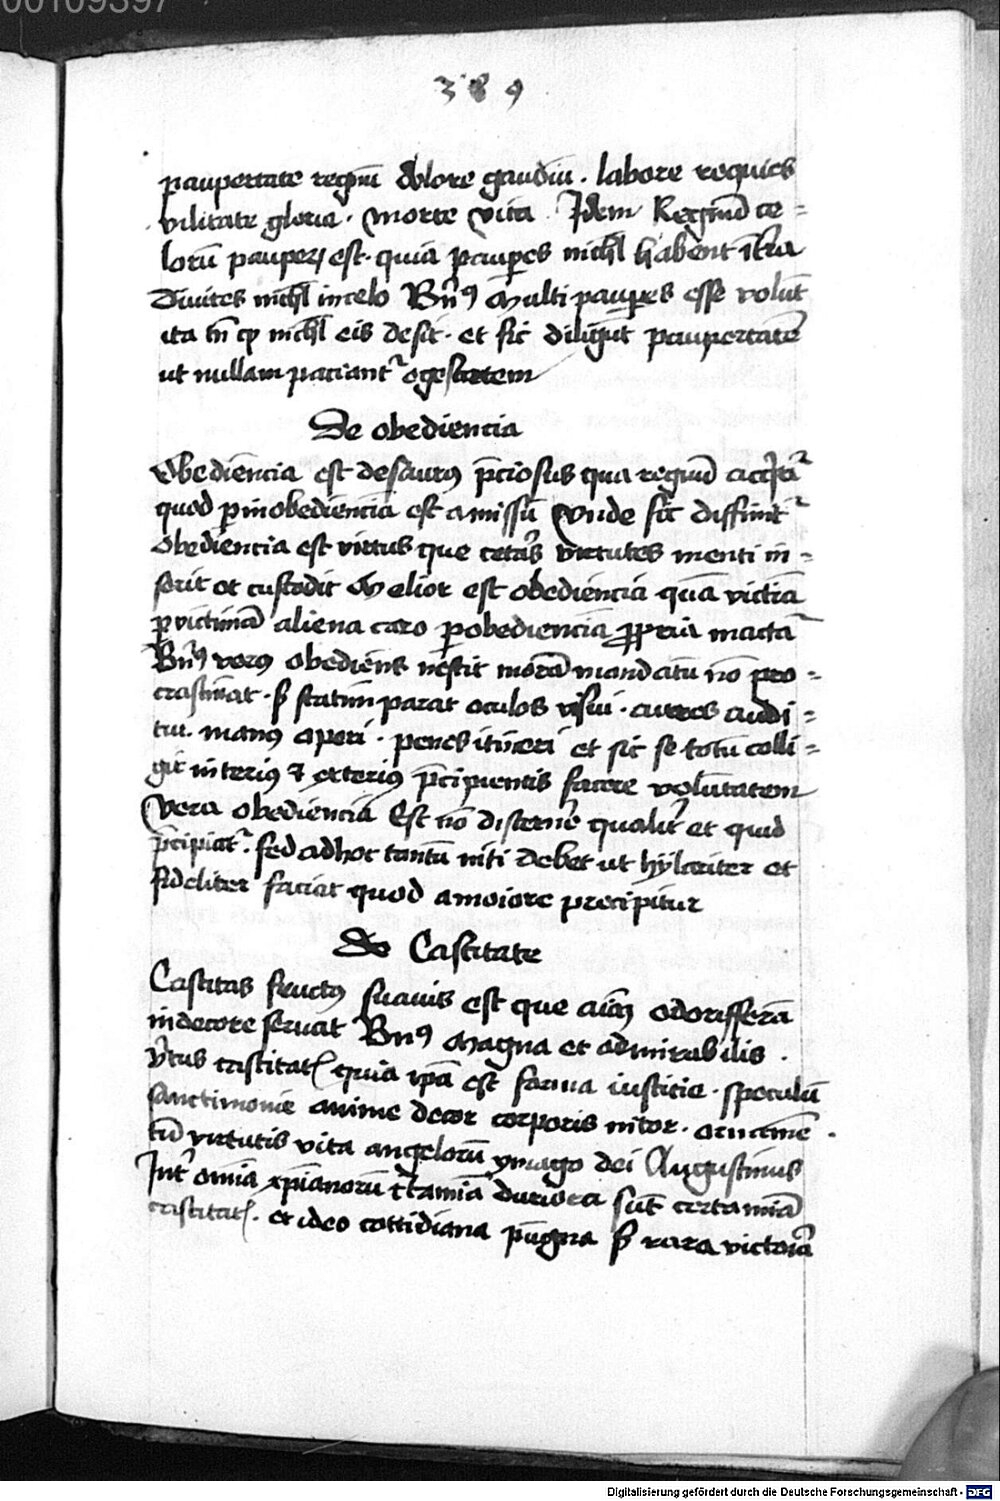 00109397
389
paupertate regnū dolore gaudiū . labore requies
vilitate gloria . morte vita . Idem Regnū ce =
lorū paupeꝝ est . quia paupes nichl habent
Diuites nichl in celo Bn̄9 Multi paupes esse volūt
ita tn̄ ꝙ nichl eis desit . et sic diligūt paupertatē
ut nullam paciant᷑ egestatem
De obediencia
Obediencia est p̄ciosus qua regnū
quod p inobedienciā est amissū Vnde sic diffinit᷑
Obediencia est virtus que cetās virtutes menti in =
serit et custodit Melior est obediencia quā victiā
p victimā aliena caro p obedienciā ꝓpria mactā
Bn̄9 verꝰ obediens nescit morā mandatū nō pro =
crastinat . sꝫ statim parat oculos visui . aures audi =
tui . manꝰ operi . pedes itineri et sic se totū colli =
git interiꝰ ⁊ exteriꝰ p̄cipientis facere volūtatem
Vera obediencia Est nō discernē qualit̄ et quid
p̄cipiat᷑ . sed ad hoc tantū niti debet ut hylariter et
fideliter faciat quod a maiore precipitur
De Castitate
Castitas fructꝰ suauis est que odorifferā
in decore seruat Bn̄9 Magna et admirabilis .
v̄tus castitatꝭ quia ip̄a est forma iusticie . speculū
sanctimonie anime decor corporis nitor . ornamē .
tū virtutis vita angelorū ymago dei Augustinus
Int̄ om̄ia xp̄ianorū c̄tamīa duriora sūt certamīa
castitatꝭ . et ideo cottidiana pūgna sꝫ rara victoria
Digitalisierung gefördert durch die Deutsche Forschungsgemeinschaft - DFG